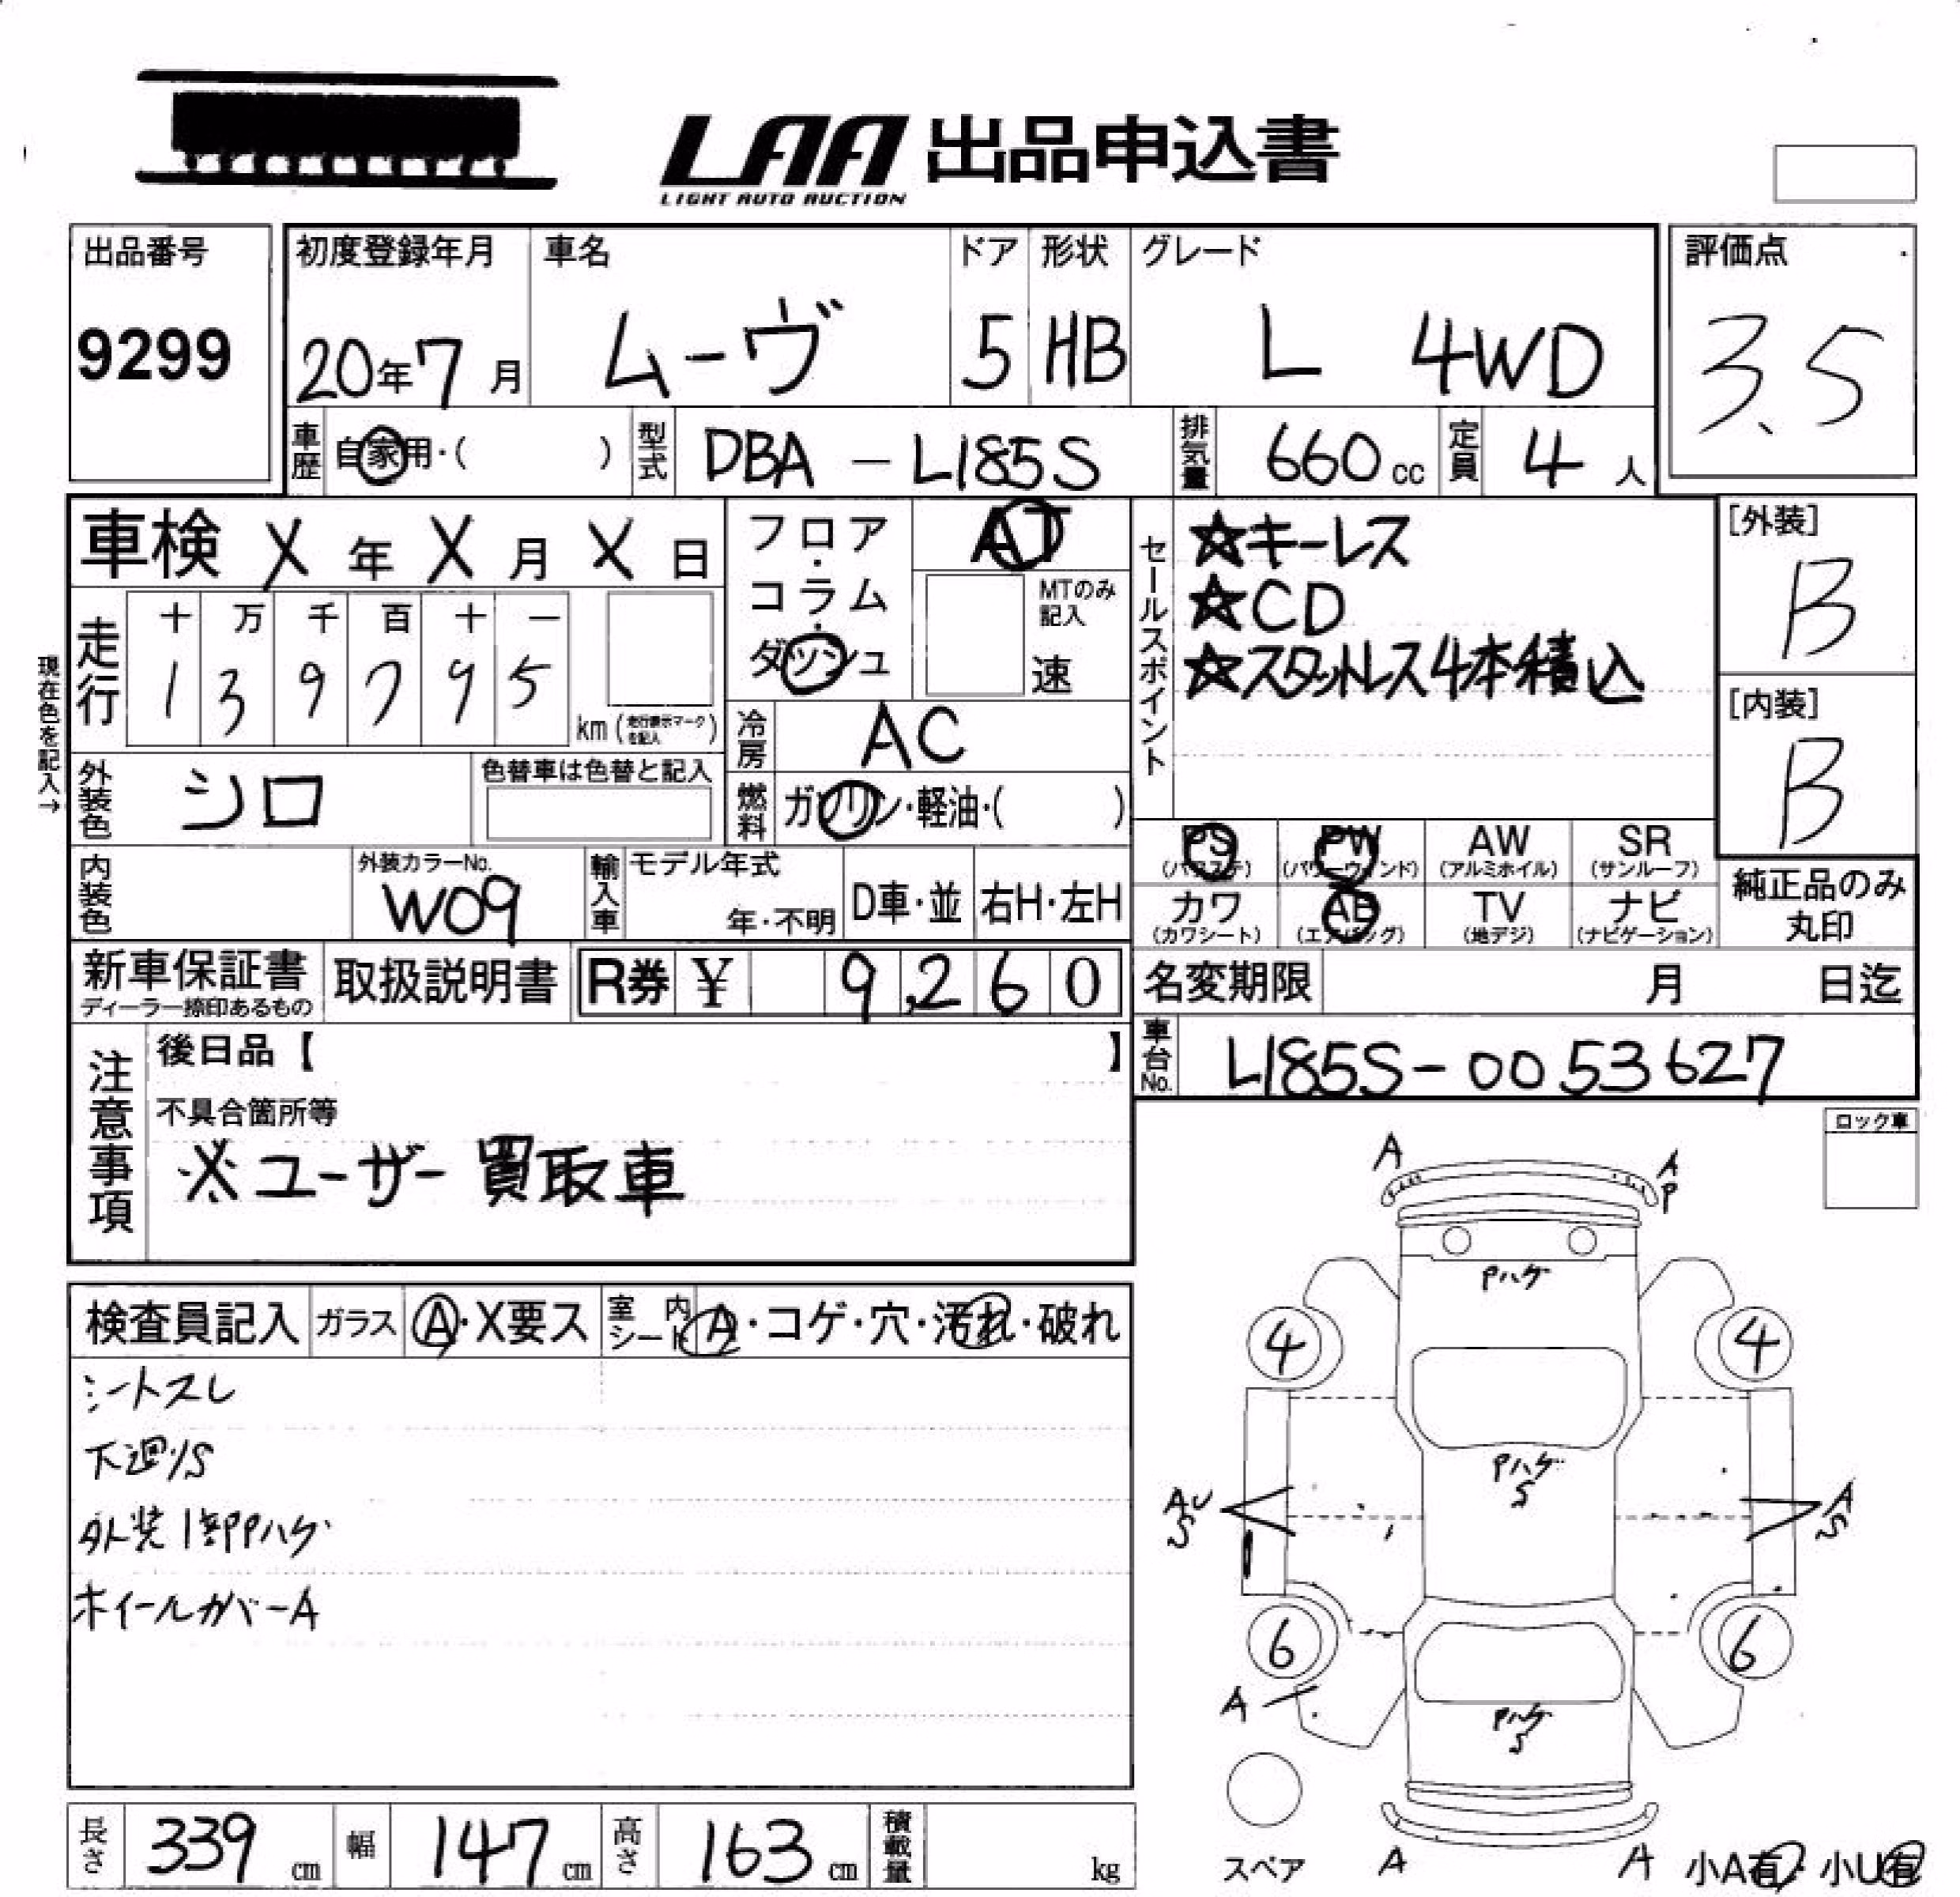 LAA 出品申込書
LIGHT AUTO AUCTION
出品番号
9299
初度登録年月
20年7月
車名
ムーヴ
ドア
5
形状
HB
グレード
L 4WD
評価点
3.5
車歴 自家用・( )
型式 DBA-L185S
排気量 660cc
定員 4人
車検 X年X月X日
フロア・コラム・ダッシュ
AT
MTのみ記入
速
セールスポイント
☆キーレス
☆CD
☆スタットレス4本積込
[外装]
B
[内装]
B
現在色を記入→
走行
十 万 千 百 十 一
1 3 9 7 9 5
km(走行表示マークを記入)
冷房 AC
外装色 シロ
色替車は色替と記入
燃料 ガソリン・軽油・( )
PS (パワステ)
PW (パワーウィンド)
AW (アルミホイル)
SR (サンルーフ)
カワ (カワシート)
AB (エアバッグ)
TV (地デジ)
ナビ (ナビゲーション)
純正品のみ丸印
内装色
外装カラーNo.
W09
輸入車
モデル年式
年・不明
D車・並
右H・左H
新車保証書
ディーラー捺印あるもの
取扱説明書
R券 ¥ 9,260
名変期限 月 日迄
車台No. L185S-0053627
注意事項
後日品【 】
不具合箇所等
※ユーザー買取車
ロック車
検査員記入
ガラス A・X要ス
室内シート A・コゲ・穴・汚れ・破れ
シートスレ
下廻/S
外装1部Pハゲ
ホイールカバーA
A
A
P
Pハゲ
4
4
Pハゲ
S
AU
S
A
S
6
6
A
Pハゲ
S
スペア
A
A
小A有・小U有
長さ 339cm
幅 147cm
高さ 163cm
積載量 kg